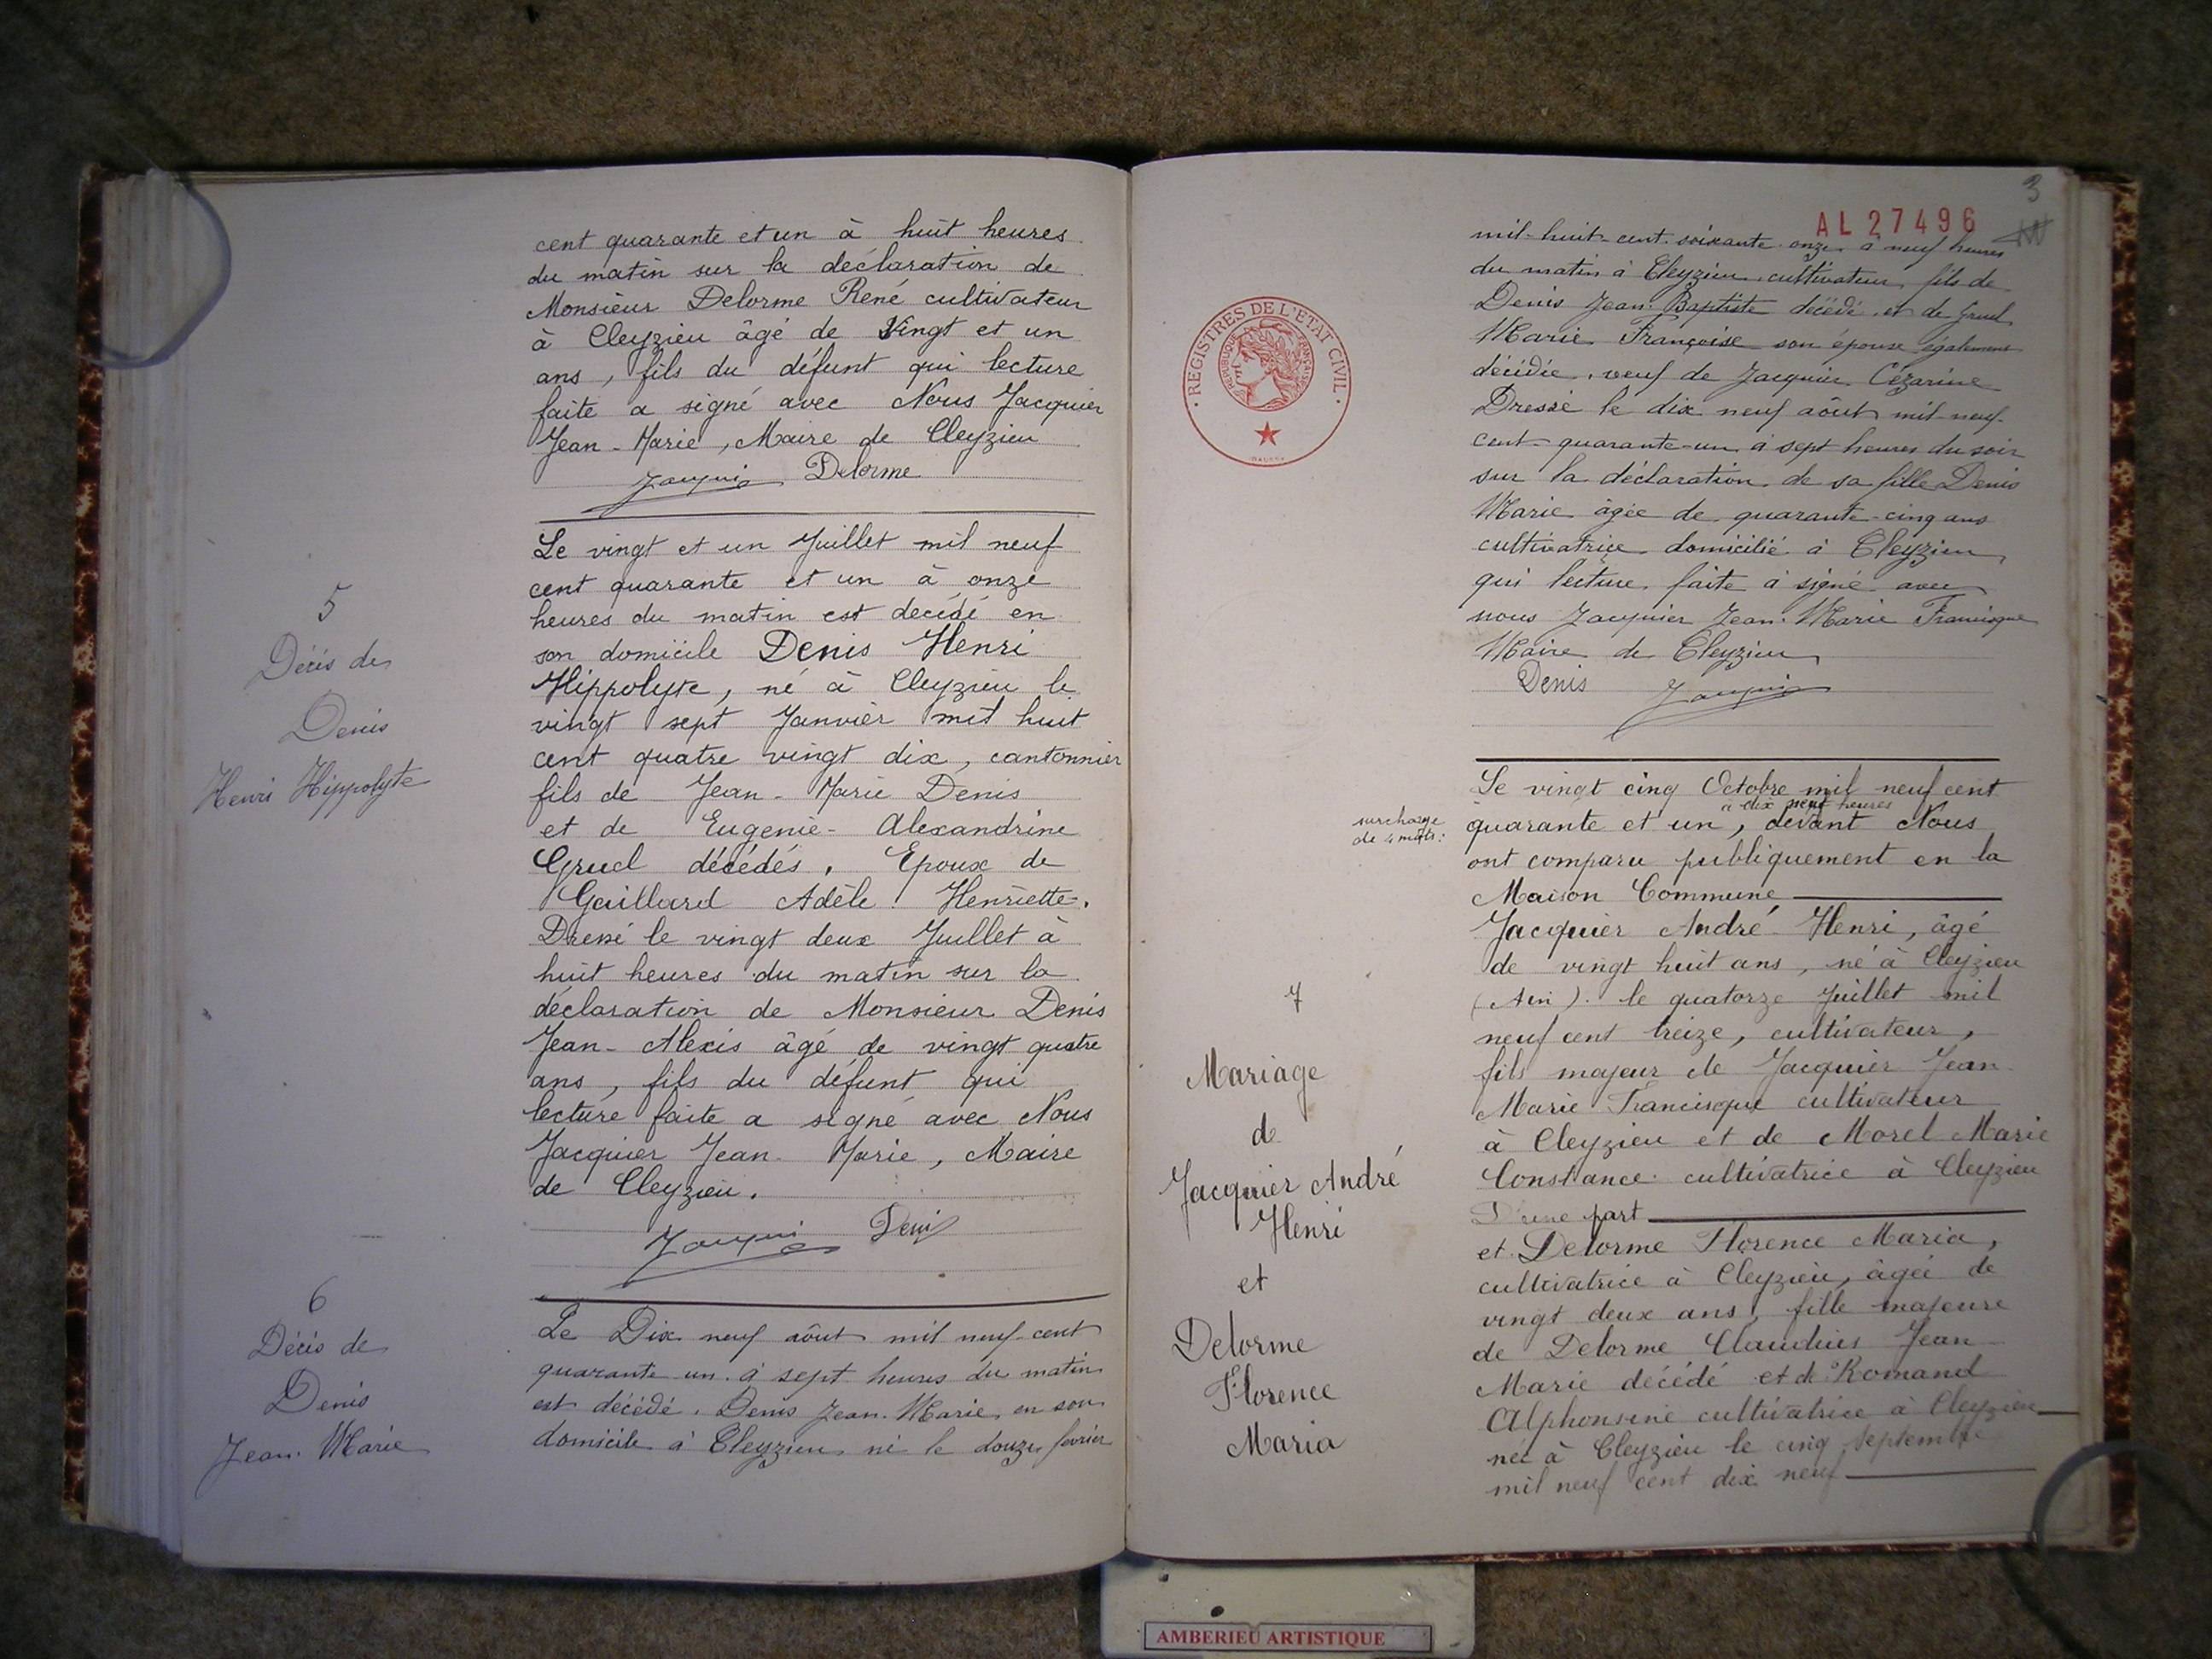 cent quarante et un à huit heures
du matin sur la déclaration de
Monsieur Delorme René cultivateur
à Cleyzieu âgé de Vingt et un
ans, fils du défunt qui lecture
faite a signé avec Nous Jacquier
Jean-Marie, Maire de Cleyzieu
Jacquier Delorme
5
Décès de
Denis
Henri Hippolyte
Le vingt et un Juillet mil neuf
cent quarante et un à onze
heures du matin est décédé en
son domicile Denis Henri
Hippolyte, né à Cleyzieu le
vingt sept Janvier mil huit
cent quatre vingt dix, cantonnier
fils de Jean-Marie Denis
et de Eugenie-Alexandrine
Gruel décédés. Epoux de
Gaillard Adèle Henriette.
Dressé le vingt deux Juillet à
huit heures du matin sur la
déclaration de Monsieur Denis
Jean-Alexis âgé de vingt quatre
ans, fils du défunt qui
lecture faite a signé avec Nous
Jacquier Jean-Marie, Maire
de Cleyzieu.
Jacquier Denis
6
Décès de
Denis
Jean-Marie
Le Dix neuf août mil neuf-cent
quarante-un à sept heures du matin
est décédé. Denis Jean-Marie, en son
domicile à Cleyzieu né le douze février
3
AL 27496
mil-huit-cent-soixante-onze à neuf heures
du matin à Cleyzieu, cultivateur, fils de
Denis Jean-Baptiste décédé, et de Gruel
Marie Françoise son épouse également
décédée, veuf de Jacquier Cézarine
Dressé le dix neuf août mil-neuf-
cent-quarante-un à sept heures du soir
sur la déclaration de sa fille Denis
Marie âgée de quarante-cinq ans
cultivatrice domicilié à Cleyzieu
qui lecture faite à signé avec
nous Jacquier Jean-Marie Francisque
Maire de Cleyzieu
Denis Jacquier
REGISTRES DE L'ETAT CIVIL
REPUBLIQUE FRANCAISE
surcharge
de 4 mots:
7
Mariage
de
Jacquier André
Henri
et
Delorme
Florence
Maria
Le vingt cinq Octobre mil neuf cent
à dix neuf heures
quarante et un, devant Nous
ont comparu publiquement en la
Maison Commune
Jacquier André-Henri, âgé
de vingt huit ans, né à Cleyzieu
(Ain). le quatorze Juillet mil
neuf cent treize, cultivateur,
fils majeur de Jacquier Jean
Marie Francisque cultivateur
à Cleyzieu et de Morel Marie
Constance cultivatrice à Cleyzieu
D'une part
et Delorme Florence Maria,
cultivatrice à Cleyzieu, âgée de
vingt deux ans, fille majeure
de Delorme Claudius Jean
Marie décédé et de Romand
Alphonsine cultivatrice à Cleyzieu
née à Cleyzieu le cinq septembre
mil neuf cent dix neuf
AMBERIEU ARTISTIQUE